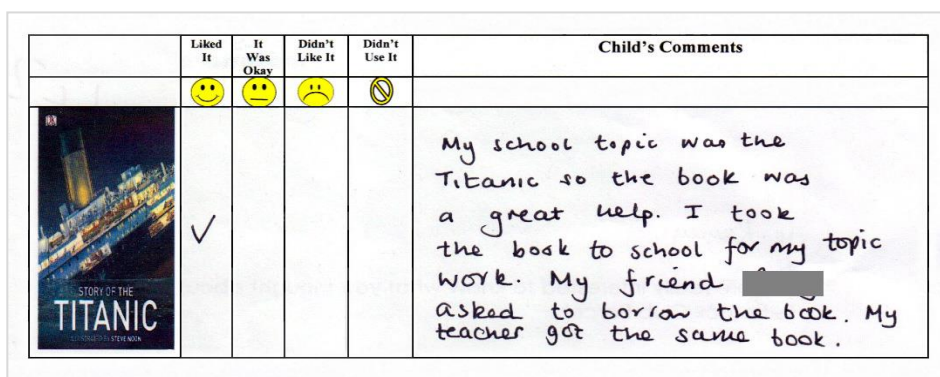 Liked It
It Was Okay
Didn't Like It
Didn't Use It
Child's Comments
DK
STORY OF THE
TITANIC
ILLUSTRATED BY STEVE NOON
My school topic was the
Titanic so the book was
a great help. I took
the book to school for my topic
work. My friend
asked to borrow the book. My
teacher got the same book.